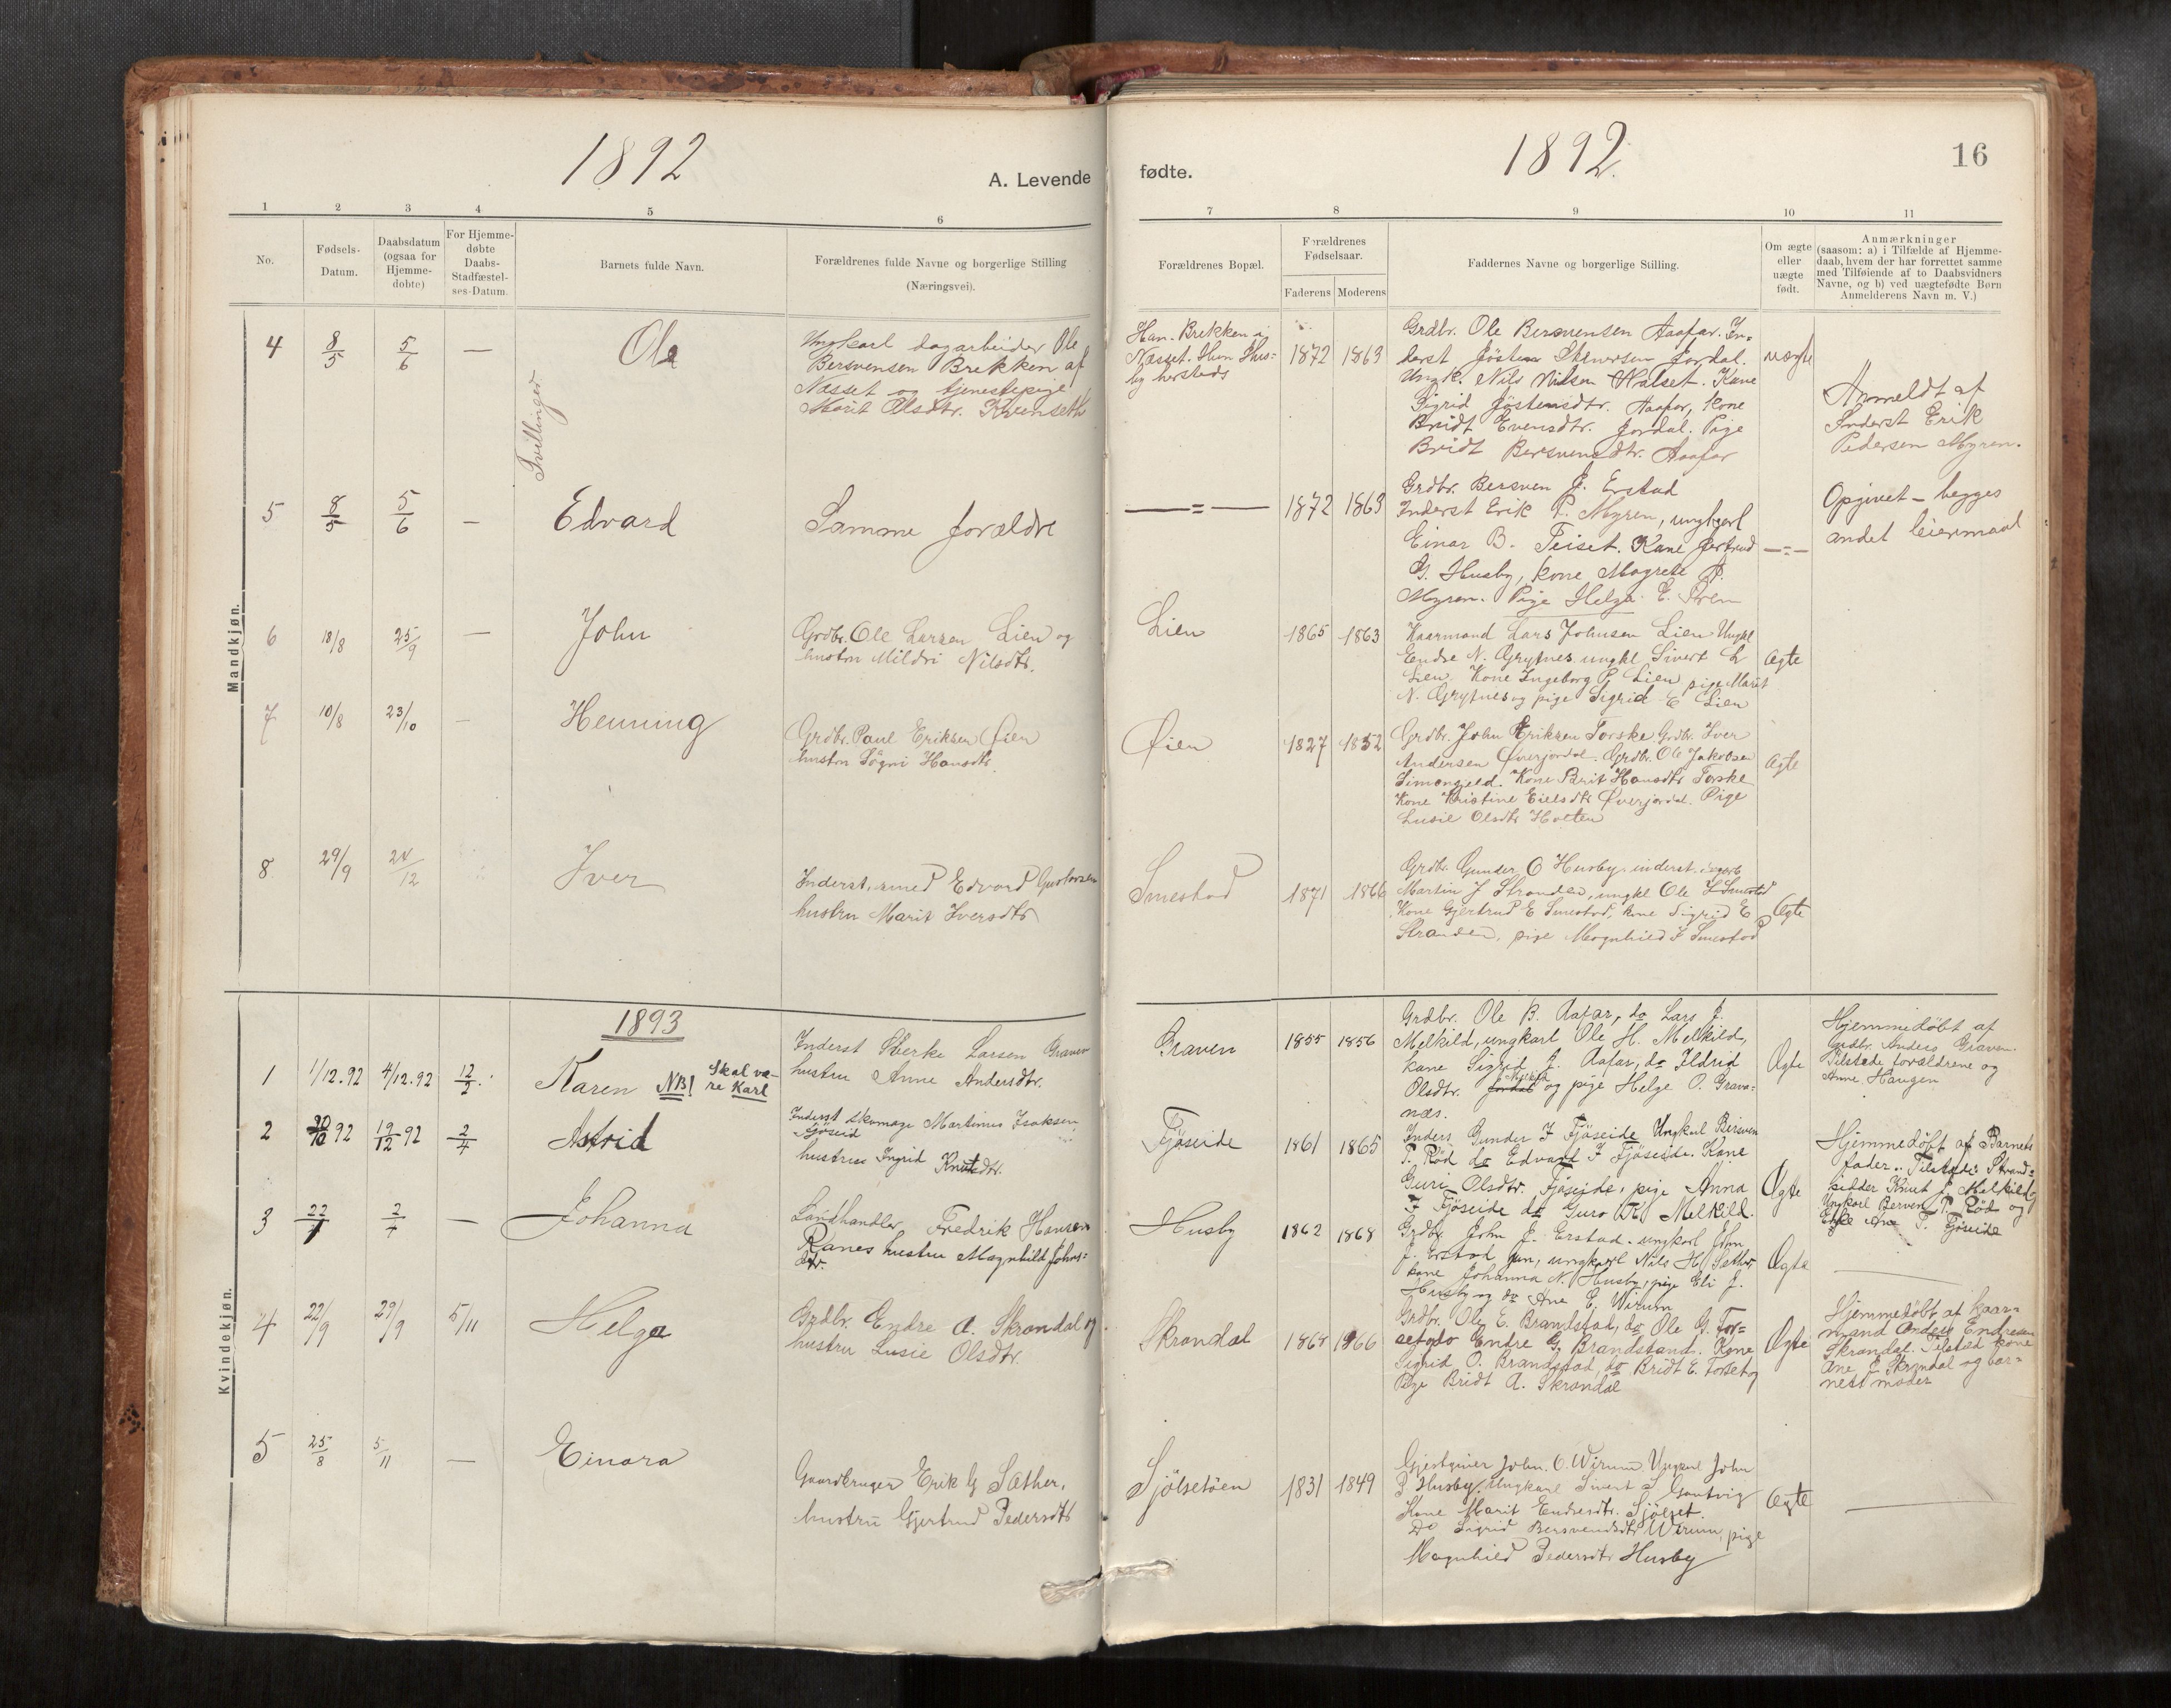 1892
A. Levende
1 2 3 4 5 6
No.
Fødsels-
Datum.
Daabsdatum
(ogsaa for
Hjemme-
døbte)
For Hjemme-
døbte
Daabs-
Stadfæstel-
ses-Datum.
Barnets fulde Navn.
Forældrenes fulde Navne og borgerlige Stilling
(Næringsvei).
Mandkjøn.
4 8/5 5/6 — Ole
Ungkarl dagarbeider Ole
Bersvensen Brekken af
Næsset og tjenestepige
Marit Olsdtr. Kvenseth
Tvillinger
5 8/5 5/6 — Edvard
Samme forældre
6 18/8 25/9 — John
Grdbr. Ole Larsen Lien og
hustru Mildri Nilsdtr.
7 10/8 23/10 — Henning
Grdbr. Paul Eriksen Øien
hustru Sögni Hansdtr.
8 29/9 24/12 Iver
Inderst, smed Edvard Gustavsen
hustru Marit Iversdtr
1893
Kvindekjøn.
1 1/12.92 4/12.92 12/2. Karen NB! Skal væ-
re Karl
Inderst Sterke Larsen Graven
hustru Anne Andersdtr.
2 92 19/12 92 2/4 Astrid
Inderst skomager Martinus Isaksen
Fjöseid
hustru Ingrid Knutsdtr.
3 2/4 — Johanna
Landhandler Fredrik Hansen
Ranes hustru Magnhild Johns=
dtr.
4 22/9 29/9 5/11 Helga
Grdbr. Endre A. Skrøndal og
hustru Lusie Olsdtr.
5 25/8 5/11 — Einara
Gaardbruger Erik G Sæther,
hustru Gjertrud Pedersdtr
fødte.
1892.
16
7 8 9 10 11
Forældrenes Bopæl.
Forældrenes
Fødselsaar.
Faderens Moderens
Faddernes Navne og borgerlige Stilling.
Om ægte
eller
uægte
født.
Anmærkninger
(saasom: a) i Tilfælde af Hjemme-
daab, hvem der har forrettet samme
med Tilføiende af to Daabsvidners
Navne, og b) ved uægtefødte Børn
Anmelderens Navn m. V.)
Han. Brekken i
Næsset. Hun Hus-
by herstads
1872 1863
Grdbr. Ole Bersvensen Aafar. In-
derst Jösten Stenersen Jordal.
Ungk. Nils Nilsen Halset. Kone
Sigrid Jöstensdtr. Aafar, kone
Bridt Evensdtr. Jordal. Pige
Bridt Bersvendtr. Aafar
uægte
Anmeldt af
Inderst Erik
Pedersen Myren.
—=— 1872 1863
Grdbr. Bersven J. Erstad
Inderst Erik P. Myren, ungkarl
Einar B. Teiset. Kone Gertrud
G. Husby, kone Magrete P.
Myren. Pige Helga E. Øren
—=—
Opgivet – begges
andet leiermaal
Lien 1865 1863
Kaarmand Lars Johnsen Lien Ungkl
Endre N. Grytnes ungkl Sivert L
Lien. Kone Ingeborg P Lien, pige Marit
N. Grytnes og pige Sigrid E Lien
Ægte
Øien 1827 1852
Grdbr. John Eriksen Torske Grdbr. Iver
Andersen Øverjordal. Grdbr. Ole Jakobsen
Kone Brit Hansdtr Torske
Kone Kristine Eilsdtr Øverjordal. Pige
Lusie Olsdtr Holten
Ægte
Smestad 1871 1866
Grdbr. Gunder O Husby, inderst
Martin J Stranden, ungkl Ole I Smestad
Kone Gjertrud E Smestad, kone Sigrid E
Stranden, pige Magnhild I Smestad
Ægte
Graven 1855 1856
Grdbr. Ole B. Aafar, do Lars J.
Melkild, ungkarl Ole H. Melkild,
kone Sigrid J. Aafar, do Ildrid
Olsdtr. Jordal Melkild og pige Helge O. Grava=
næs.
Ægte
Hjemmedøbt af
Grdbr. Anders Graven.
Tilstede forældrene og
Anne Haugen
Fjöseide 1861 1865
Inders. Gunder I Fjöseide Ungkarl Bersven
P. Röd do Edvard I Fjöseide. Kone
Guri Olsdtr. Fjöseide, pige Anna
I Fjöseide do Guro K. Melkild.
Ægte
Hjemmedøbt af Barnets
fader. Tilstede Strand=
sidder Knut J. Melkild
Ungkarl Berven P. Röd og
T. Fjöseide
Husby 1862 1868
Grdbr. John J. Erstad. ungkarl John
J. Erstad jun, ungkarl Nils H Sæther
kone Johanna N. Husby, pige Eli J.
Husby og do Ane E. Wirum
Ægte
Skrøndal 1868 1866
Grdbr. Ole E. Brandstad, do Ole G. For=
set do Endre G. Brandstand. Kone
Sigrid O. Brandstad, do Bridt E. Forset og
Pige Bridt A. Skrøndal
Ægte
Hjemmedöbt af kaar=
mand Anders Endresen
Skröndal. Tilsted kone
Ane E Skröndal og bar=
nets moder
Sjölsetöen 1831 1849
Gjestgiver John O. Wirum Ungkarl John
P Husby. Ungkarl Sivert S Gautvig
Kone Marit Endresdtr. Sjölset.
Do Sigrid Bersvendsdtr Wirum, pige
Magnhild Pedersdtr Husby
Ægte